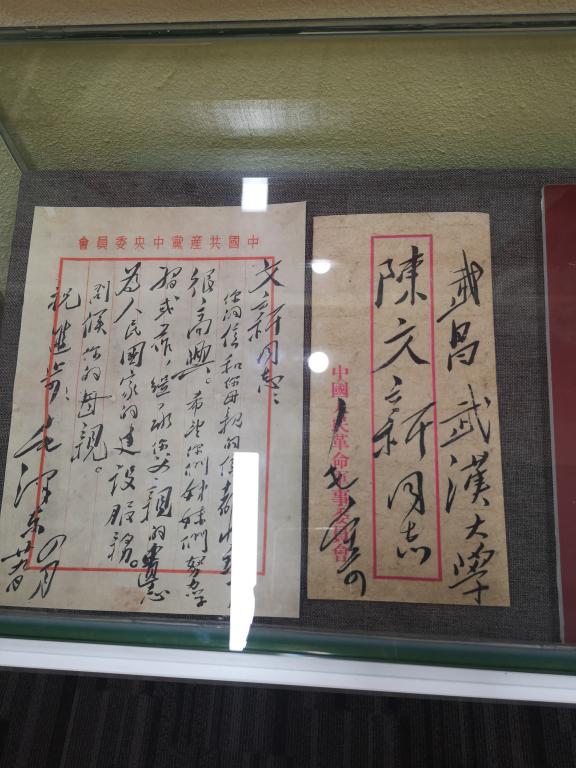 中國共產黨中央委員會
文新同志：
你的信和你母親的信都收到
很高興。希望你們姊妹們努力學
習或工作，繼承你父親的遺志
為人民國家的建設服務。
問候你的母親。
祝進步！
毛澤東
四月
武昌 武漢大學
陳文新同志
中國人民革命軍事委員會